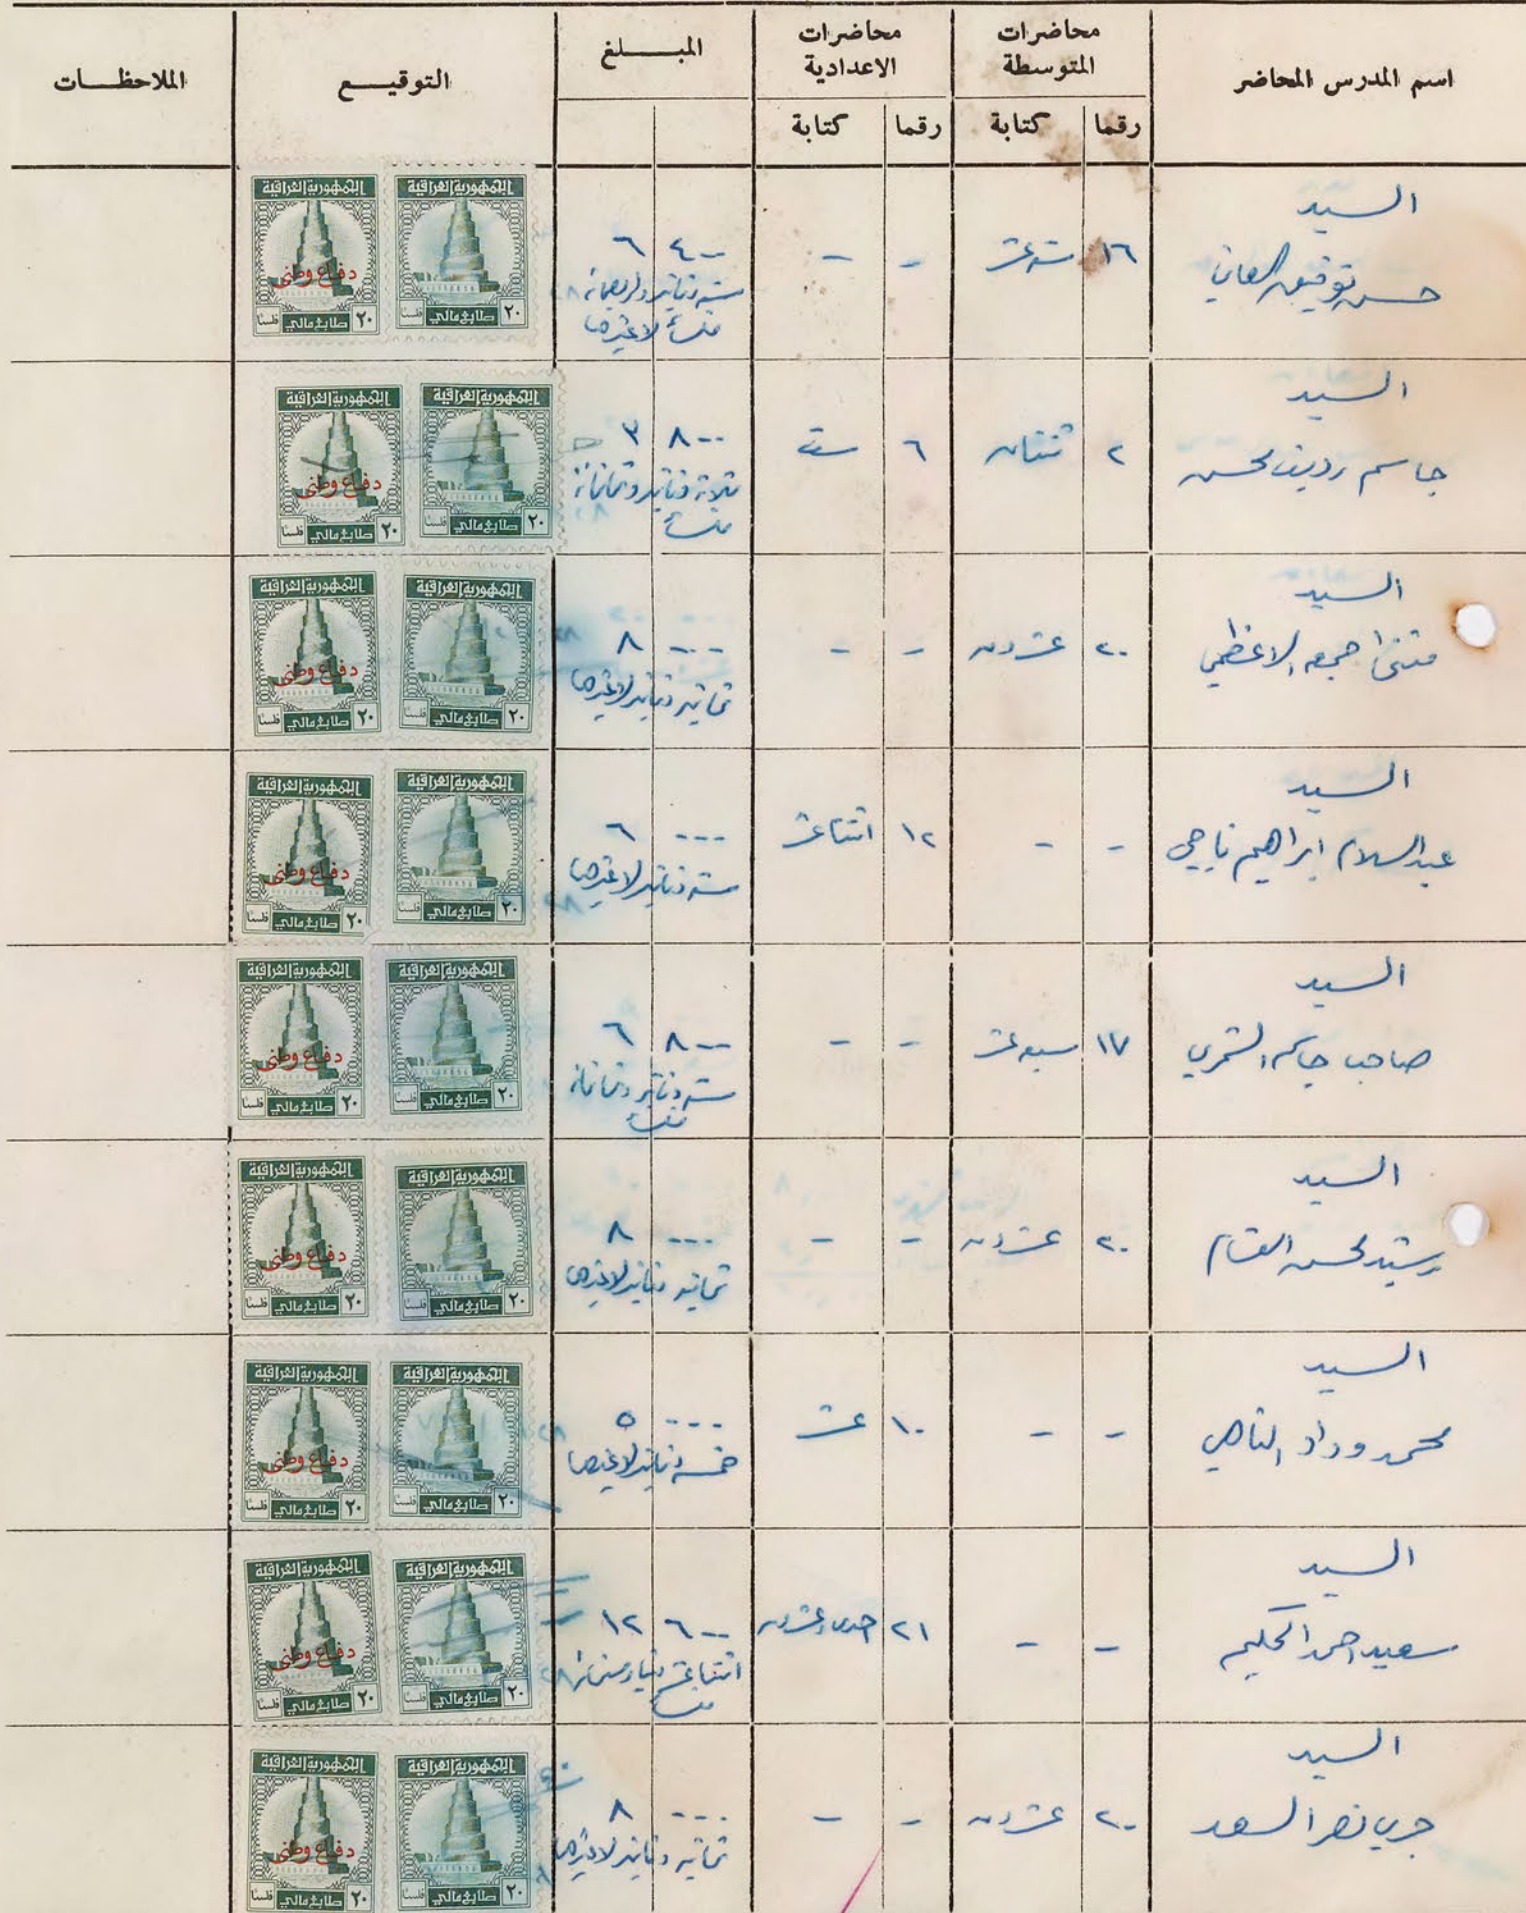 اسم المدرس المحاضر
محاضرات المتوسطة
رقما كتابة
محاضرات الاعدادية
رقما كتابة
المبــلغ
التوقيــع
الملاحظــات
السيد
حسن توفيق العاني
١٦ ستة عشر - - ٤٠٠ ٦
ستة دنانير واربعمائة
فلساً لاغيرها
الجمهورية العراقية
٢٠ طابع مالي فلسًا
الجمهورية العراقية
دفاع وطني
٢٠ طابع مالي فلسًا
السيد
جاسم رديف محسن
٢ ثنتان ٦ ست ٨٠٠ ٣
ثلاثة دنانير وثمانمائة
فلساً
الجمهورية العراقية
٢٠ طابع مالي فلسًا
الجمهورية العراقية
دفاع وطني
٢٠ طابع مالي فلسًا
السيد
جمعه الاعظمي
٢٠ عشرون - - ٠٠٠ ٨
ثمانية دنانير لاغيرها
الجمهورية العراقية
٢٠ طابع مالي فلسًا
الجمهورية العراقية
دفاع وطني
٢٠ طابع مالي فلسًا
السيد
عبدالسلام ابراهيم ناجي
- - ١٢ اثنتا عشر ٠٠٠ ٦
ستة دنانير لاغيرها
الجمهورية العراقية
٢٠ طابع مالي فلسًا
الجمهورية العراقية
دفاع وطني
٢٠ طابع مالي فلسًا
السيد
صاحب جاسم الشمري
١٧ سبعة عشر - - ٨٠٠ ٦
ستة دنانير وثمانمائة
فلساً
الجمهورية العراقية
٢٠ طابع مالي فلسًا
الجمهورية العراقية
دفاع وطني
٢٠ طابع مالي فلسًا
السيد
رشيد محسن القسام
٢٠ عشرون - - ٠٠٠ ٨
ثمانية دنانير لاغيرها
الجمهورية العراقية
٢٠ طابع مالي فلسًا
الجمهورية العراقية
دفاع وطني
٢٠ طابع مالي فلسًا
السيد
محمد وداد
- - ١٠ عشر ٠٠٠ ٥
خمسة دنانير لاغيرها
الجمهورية العراقية
٢٠ طابع مالي فلسًا
الجمهورية العراقية
دفاع وطني
٢٠ طابع مالي فلسًا
السيد
سعيد احمد الحكيم
- - ٢١ احدى وعشرون ٦٠٠ ١٢
اثنتا عشر دينار وستمائة
فلساً
الجمهورية العراقية
٢٠ طابع مالي فلسًا
الجمهورية العراقية
دفاع وطني
٢٠ طابع مالي فلسًا
السيد
جري نصر السعد
٢٠ عشرون - - ٠٠٠ ٨
ثمانية دنانير لاغيرها
الجمهورية العراقية
٢٠ طابع مالي فلسًا
الجمهورية العراقية
دفاع وطني
٢٠ طابع مالي فلسًا